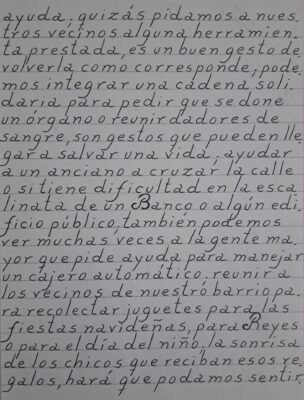 ayuda, quizás pidamos a nues
tros vecinos alguna herramien
ta prestada, es un buen gesto de
volverla como corresponde, pode
mos integrar una cadena soli
daria para pedir que se done
un órgano o reunir dadores de
sangre, son gestos que pueden lle
gar a salvar una vida, ayudar
a un anciano a cruzar la calle
o si tiene dificultad en la esca
linata de un Banco o algún edi
ficio público, también podemos
ver muchas veces a la gente ma
yor que pide ayuda para manejar
un cajero automático. reunir a
los vecinos de nuestro barrio pa
ra recolectar juguetes para las
fiestas navideñas, para Reyes
o para el día del niño, la sonrisa
de los chicos que reciban esos re
galos, hará que podamos sentir